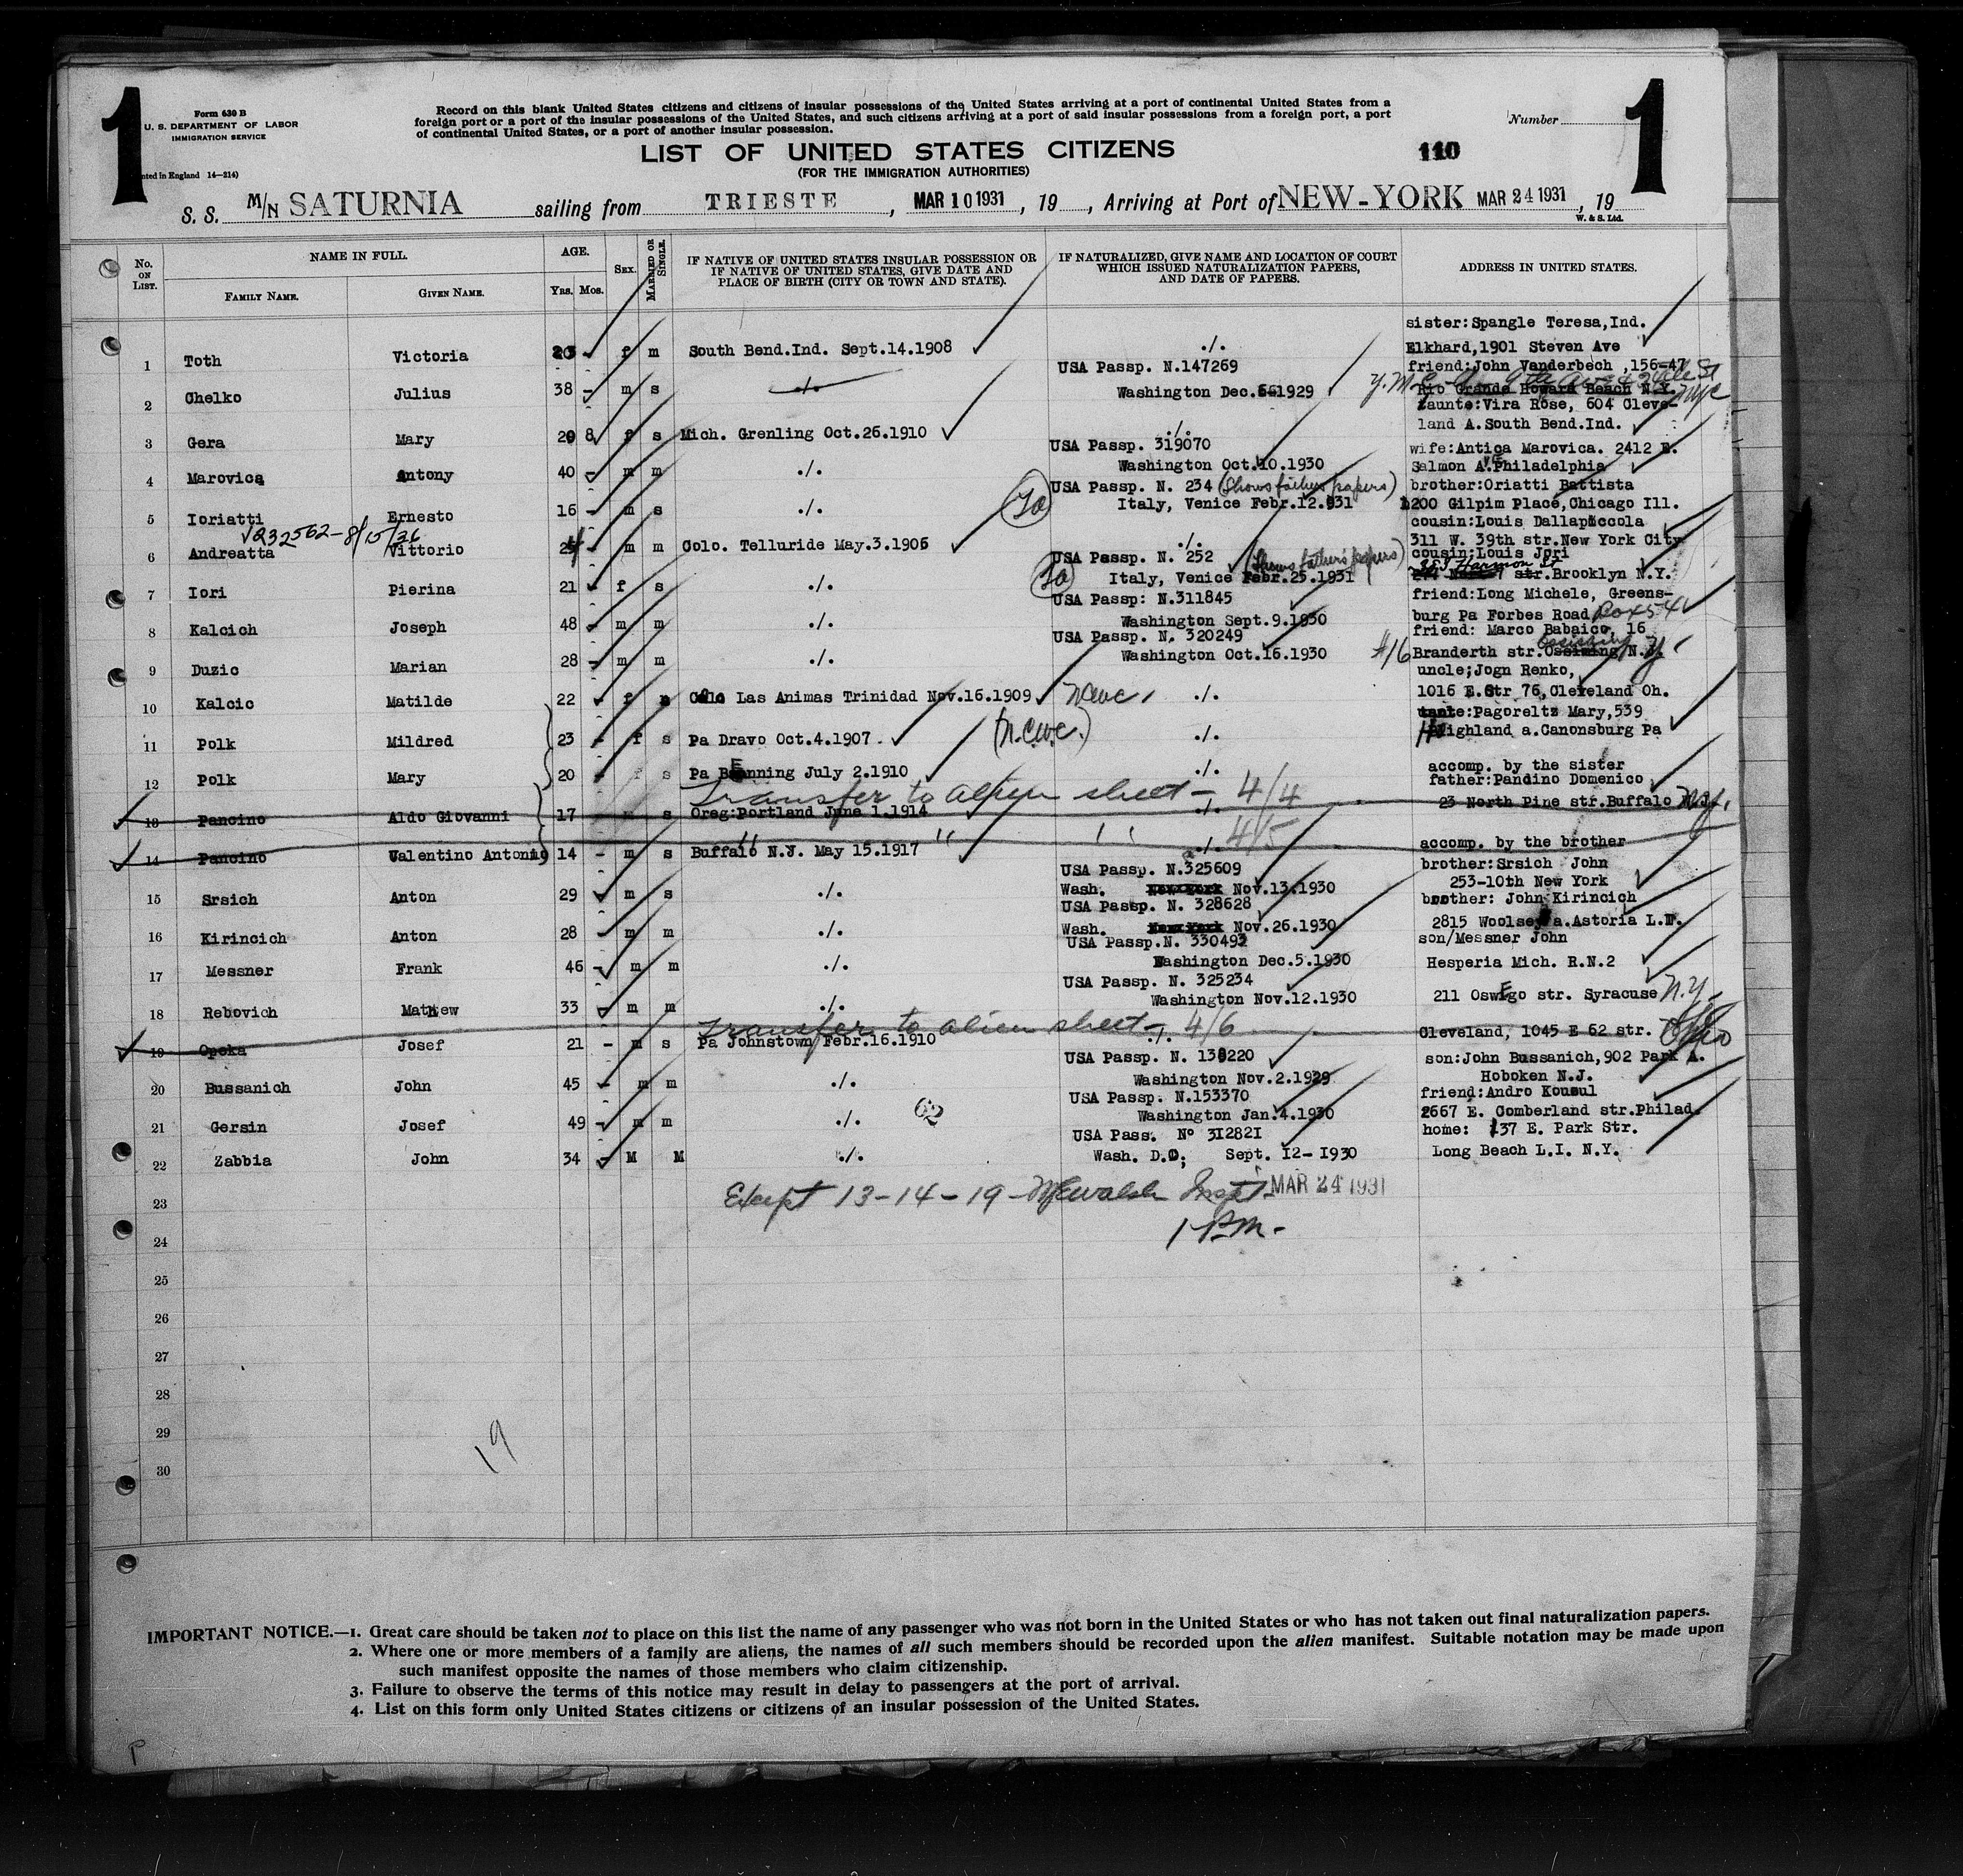 1
1
Form 630 B
U. S. DEPARTMENT OF LABOR
IMMIGRATION SERVICE
nted in England 14—214)
Record on this blank United States citizens and citizens of insular possessions of the United States arriving at a port of continental United States from a
foreign port or a port of the insular possessions of the United States, and such citizens arriving at a port of said insular possessions from a foreign port, a port
of continental United States, or a port of another insular possession.
Number
LIST OF UNITED STATES CITIZENS
110
(FOR THE IMMIGRATION AUTHORITIES)
S. S. M/N SATURNIA sailing from TRIESTE, MAR 10 1931, 19, Arriving at Port of NEW-YORK MAR 24 1931, 19
W. & S. Ltd.
No. ON LIST.
NAME IN FULL.
FAMILY NAME.
GIVEN NAME.
AGE.
YRS. MOS.
SEX.
MARRIED OR SINGLE.
IF NATIVE OF UNITED STATES INSULAR POSSESSION OR
IF NATIVE OF UNITED STATES, GIVE DATE AND
PLACE OF BIRTH (CITY OR TOWN AND STATE).
IF NATURALIZED, GIVE NAME AND LOCATION OF COURT
WHICH ISSUED NATURALIZATION PAPERS,
AND DATE OF PAPERS.
ADDRESS IN UNITED STATES.
sister:Spangle Teresa,Ind.
1 Toth Victoria f m South Bend.Ind. Sept.14.1908 ./. Elkhard,1901 Steven Ave
USA Passp. N.147269 friend:John Vanderbech ,156-47
2 Chelko Julius 38 - m s ./. Washington Dec. 1929 Rio Grande Howard Beach N.Y.
aunte:Vira Rose, 604 Cleve-
3 Gera Mary 20 8 f s Mich. Grenling Oct.26.1910 ./. land A.South Bend.Ind.
USA Passp. 319070 wife:Antica Marovica. 2412 E.
4 Marovica Antony 40 - m m ./. Washington Oct.10.1930 Salmon A.Philadelphia
USA Passp. N. 234 (Shows father papers) brother:Oriatti Battista
5 Ioriatti Ernesto 16 - m s ./. Italy, Venice Febr.12.931 1200 Gilpim Place,Chicago Ill.
232562-8/15/36 cousin:Louis Dallapiccola
6 Andreatta Vittorio m m Colo. Telluride May.3.1906 ./. 311 W. 39th str.New York City
USA Passp. N. 252 (Shows father's papers) cousin:Louis Jori
283 Harmon St
7 Iori Pierina 21 f s ./. Italy, Venice Febr.25.1931 str.Brooklyn N.Y.
USA Passp: N.311845 friend:Long Michele, Greens-
8 Kalcich Joseph 48 - m m ./. Washington Sept.9.1930 burg Pa Forbes Road Box 54
USA Passp. N. 320249 friend: Marco Babaico, 16
9 Duzic Marian 28 - m m ./. Washington Oct.16.1930 #16 Branderth str.Ossining N.Y.
uncle;Jogn Renko,
10 Kalcic Matilde 22 f Colo Las Animas Trinidad Nov.16.1909 ./. 1016 E.Str 76,Cleveland Oh.
tante:Pagoreltz Mary,539
11 Polk Mildred 23 - f s Pa Dravo Oct.4.1907. (N.C.W.C.) ./. Highland a.Canonsburg Pa
12 Polk Mary 20 f s Pa Benning July 2.1910 ./. accomp. by the sister
Transfer to alien sheet - 4/4 father:Pandino Domenico
13 Pancino Aldo Giovanni 17 m s Oreg:Portland June 1.1914 ./. 23 North Pine str.Buffalo N.Y.
" " 4/5
14 Pancino Valentino Antonio 14 - m s Buffalo N.Y. May 15.1917 ./. accomp. by the brother
USA Passp. N.325609 brother:Srsich John
15 Srsich Anton 29 m s ./. Wash. New York Nov.13.1930 253-10th New York
USA Passp. N. 328628 brother: John Kirincich
16 Kirincich Anton 28 - m m ./. Wash. New York Nov.26.1930 2815 Woolsey a.Astoria L.I.
USA Passp.N. 330492 son/Messner John
17 Messner Frank 46 - m m ./. Washington Dec.5.1930 Hesperia Mich. R.N.2
USA Passp. N. 325234
18 Rebovich Mathew 33 - m m ./. Washington Nov.12.1930 211 Oswego str. Syracuse N.Y.
Transfer to alien sheet - 4/6
19 Opeka Josef 21 - m s Pa Johnstown Febr.16.1910 ./. Cleveland, 1045 E 62 str. Ohio
USA Passp. N. 138220 son:John Bussanich,902 Park A.
20 Bussanich John 45 - m m ./. Washington Nov.2.1929 Hoboken N.J.
USA Passp. N.153370 friend:Andro Kousul
21 Gersin Josef 49 - m m ./. 62 Washington Jan.4.1930 2667 E. Comberland str.Philad.
USA Pass. Nº 312821 home: 137 E. Park Str.
22 Zabbia John 34 - M M ./. Wash. D.C; Sept. 12-1930 Long Beach L.I. N.Y.
23 Except 13-14-19- McWalsh Inspt. MAR 24 1931
1 P.M.-
24
25
26
27
28
29
19
30
IMPORTANT NOTICE.—1. Great care should be taken not to place on this list the name of any passenger who was not born in the United States or who has not taken out final naturalization papers.
2. Where one or more members of a family are aliens, the names of all such members should be recorded upon the alien manifest. Suitable notation may be made upon
such manifest opposite the names of those members who claim citizenship.
3. Failure to observe the terms of this notice may result in delay to passengers at the port of arrival.
4. List on this form only United States citizens or citizens of an insular possession of the United States.
P